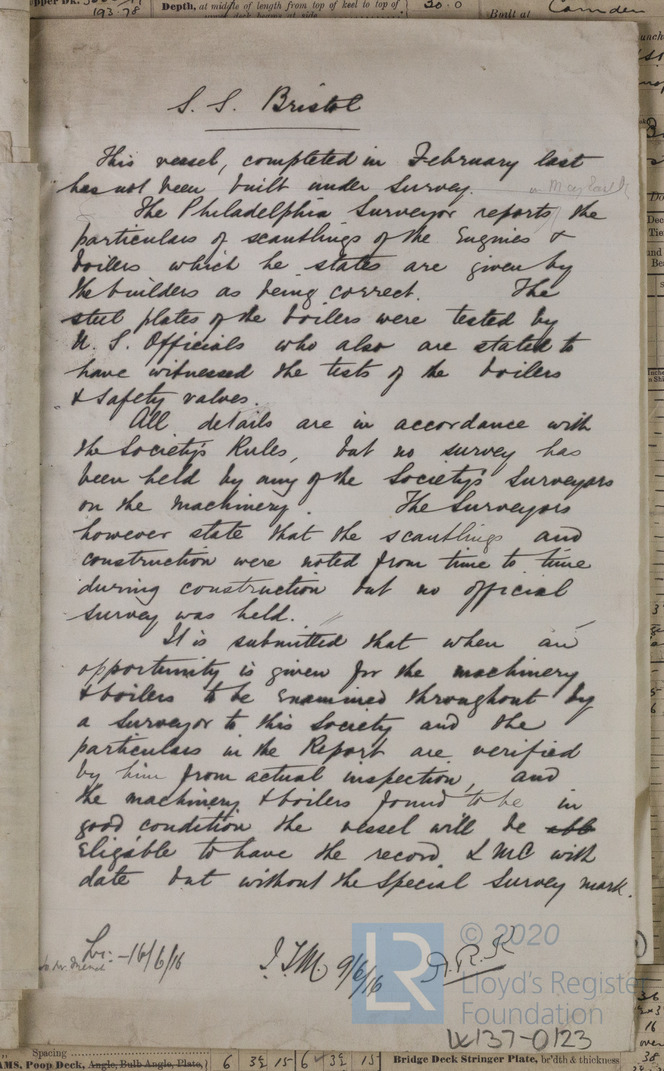 193.78
Depth, at middle of length from top of keel to top of
20.0
Built at
Camden
S. S. Bristol
This vessel, completed in February last
has not been built under Survey.
The Philadelphia Surveyor reports the
particulars of scantlings of the Engines &
boilers which he states are given by
the builders as being correct. The
steel plates of the boilers were tested by
U. S. Officials who also are stated to
have witnessed the tests of the boilers
& Safety valves.
All details are in accordance with
the Society's Rules, but no survey has
been held by any of the Society's Surveyors
on the machinery. The Surveyors
however state that the scantlings and
construction were noted from time to time
during construction but no official
survey was held.
It is submitted that when an
opportunity is given for the machinery
& boilers to be examined throughout by
a Surveyor to this Society and the
particulars in the Report are verified
by him from actual inspection, and
the machinery & boilers found to be in
good condition the vessel will be
Eligible to have the record LMC with
date but without the Special Survey mark.
16/6/16
J.T.M. 9/6/16
A.R.K
LR
© 2020
Lloyd's Register
Foundation
W137-0123
Spacing
AMS, Poop Deck, Angle, Bulb Angle, Plate,
6 3½ 15 6 3½ 15
Bridge Deck Stringer Plate, br'dth & thickness